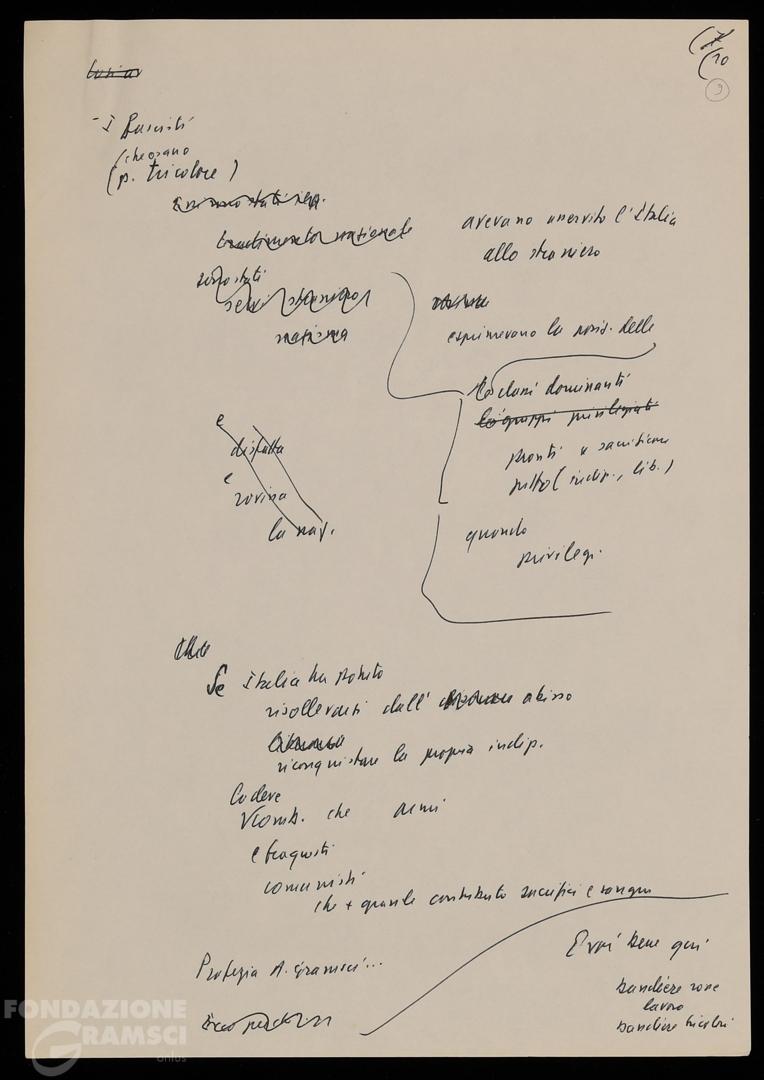 (7
(10
9
- I Fascisti
(che osano
(p. tricolore)
tradimento nazionale
sono stati
servi straniero
avevano asservito l'Italia
allo straniero
esprimevano la posiz. delle
classi dominanti
gruppi privilegiati
pronti a sacrificare
tutto (indip., lib.)
quando
privilegi.
e
disfatta
e
rovina
la naz.
Se Italia ha potuto
risollevarsi dall' abisso
riconquistare la propria indip.
che armi
e fra questi
comunisti
che + grande contributo sacrifici e sangue
Profezia A. Gramsci...
E voi bene qui
bandiere rosse
lavoro
bandiere tricolori
FONDAZIONE
GRAMSCI
onlus